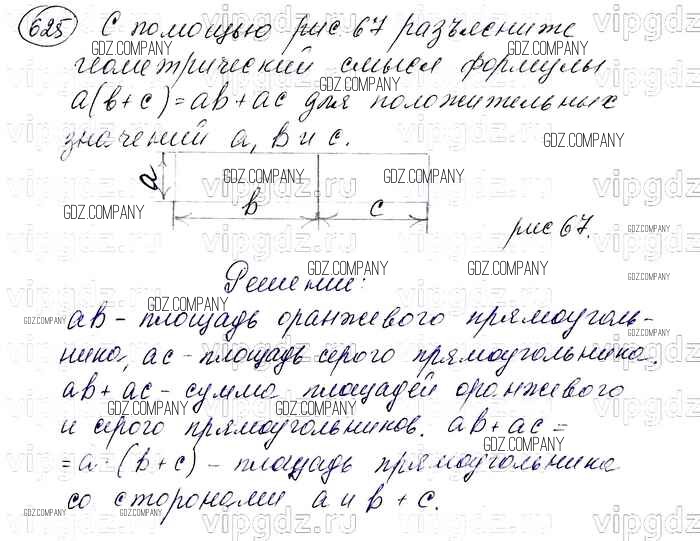 625 С помощью рис 67 разъясните
геометрический смысл формулы
a(b+c)=ab+ac для положительных
значений a, b и c.
a
b
c
рис 67.
Решение:
ab - площадь оранжевого прямоуголь-
ника, ac - площадь серого прямоугольника.
ab + ac - сумма площадей оранжевого
и серого прямоугольников. ab + ac =
= a · (b + c) - площадь прямоугольника
со сторонами a и b + c.
GDZ.COMPANY
vipgdz.ru